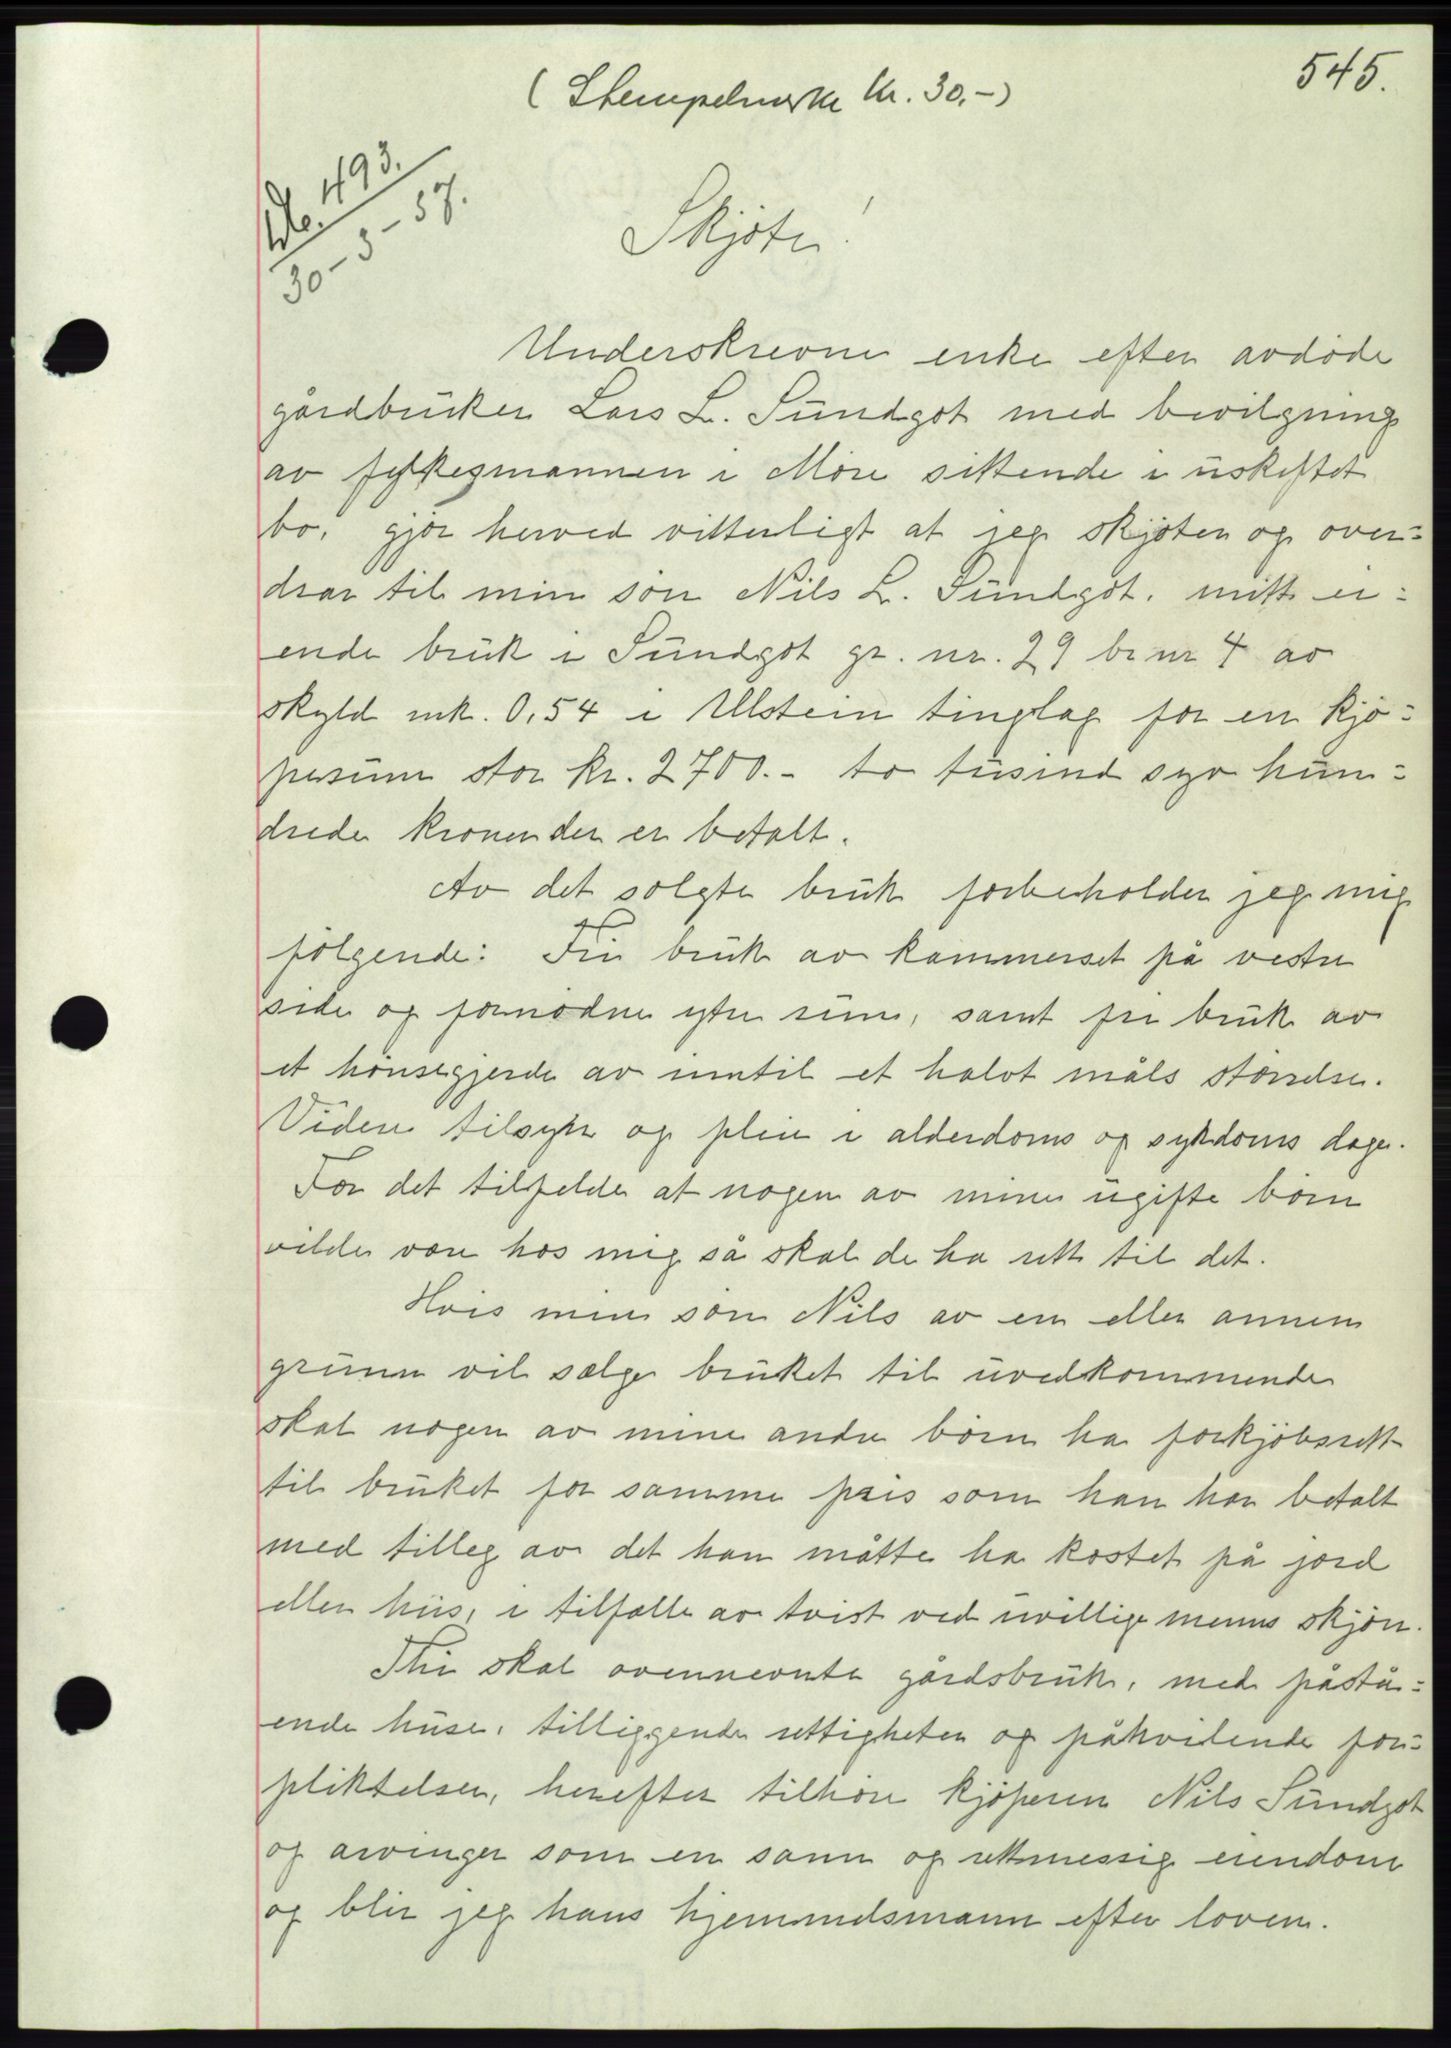 545.
(Stempelmerke kr. 30.-)
No. 493.
30-3-37.
Skjøte!
Underskrevne enke efter avdøde
gårdbruker Lars L. Sundgot med bevilgning
av fylkesmannen i Møre sittende i uskiftet
bo, gjør herved vitterligt at jeg skjøter og over=
drar til min søn Nils L. Sundgot, mitt ei=
ende bruk i Sundgot gr. nr. 29 br nr 4 av
skyld mk. 0,54 i Ulstein tinglag for en kjø=
pesum stor kr. 2700.- to tusind syv hun=
drede kroner der er betalt.
Av det solgte bruk forbeholder jeg mig
følgende: Fri bruk av kammerset på vestre
side og fornødne ytre rum, samt fri bruk av
et hønsegjerde av inntil et halvt måls størrelse.
Videre tilsyn og pleie i alderdoms og sykdoms dage.
For det tilfelde at nogen av mine ugifte børn
vilde være hos mig så skal de ha rett til det.
Hvis min søn Nils av en eller annen
grunn vil sælge bruket til uvedkommende
skal nogen av mine andre børn ha forkjøbsrett
til bruket for samme pris som han har betalt
med tilleg av det han måtte ha kostet på jord
eller hus, i tilfælle av tvist ved uvillige menns skjøn.
Thi skal ovennevnte gårdsbruk, med påstå=
ende huse, tilliggende rettigheter og påhvilende for=
pliktelser, herefter tilhøre kjøperen Nils Sundgot
og arvinger som en sann og rettmessig eiendom
og blir jeg hans hjemmelsmann efter loven.